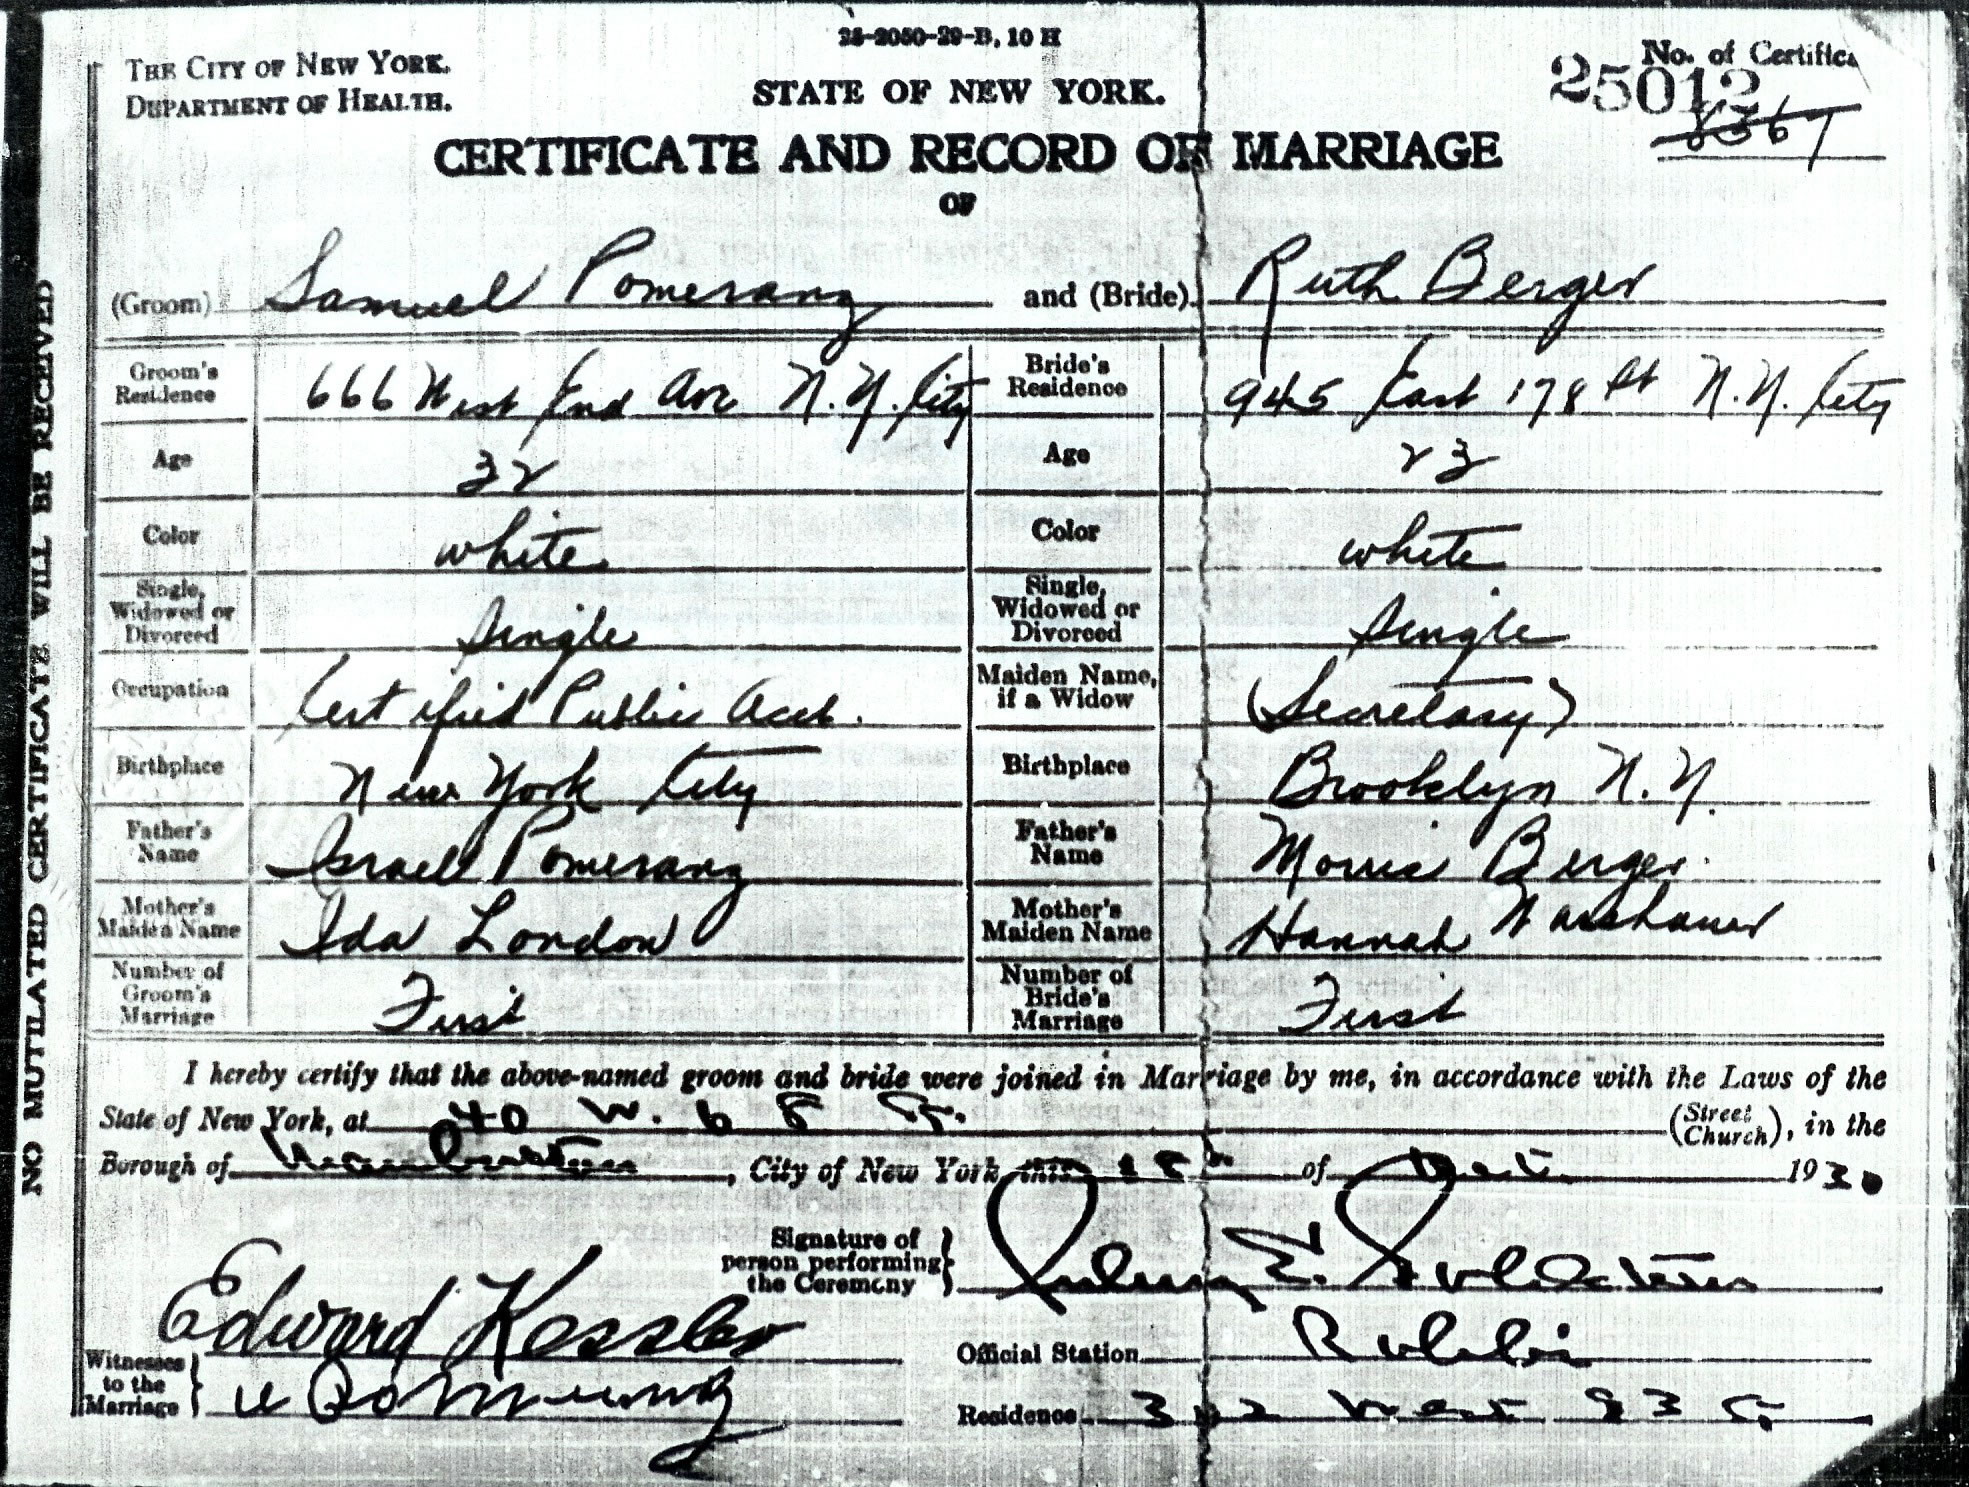 28-2050-29-B, 10 H
THE CITY OF NEW YORK.
DEPARTMENT OF HEALTH.
STATE OF NEW YORK.
No. of Certifica
25012
8367
CERTIFICATE AND RECORD OF MARRIAGE
OF
(Groom) Samuel Pomeranz and (Bride) Ruth Berger
Groom's Residence 666 West End Ave N.Y. City Bride's Residence 945 East 178 St N.Y. City
Age 32 Age 23
Color white Color white
Single, Widowed or Divorced Single Single, Widowed or Divorced Single
Occupation Certified Public Acct. Maiden Name, if a Widow (Secretary)
Birthplace New York City Birthplace Brooklyn N.Y.
Father's Name Israel Pomeranz Father's Name Morris Berger
Mother's Maiden Name Ida London Mother's Maiden Name Hannah Warshauer
Number of Groom's Marriage First Number of Bride's Marriage First
I hereby certify that the above-named groom and bride were joined in Marriage by me, in accordance with the Laws of the
State of New York, at 40 W. 68 St. (Street Church), in the
Borough of Manhattan, City of New York this of Oct. 1930
Signature of person performing the Ceremony Sidney E. Goldstein
Edward Kessler
Official Station Rabbi
Witnesses to the Marriage
Residence West 93 St
NO MUTILATED CERTIFICATE WILL BE RECEIVED